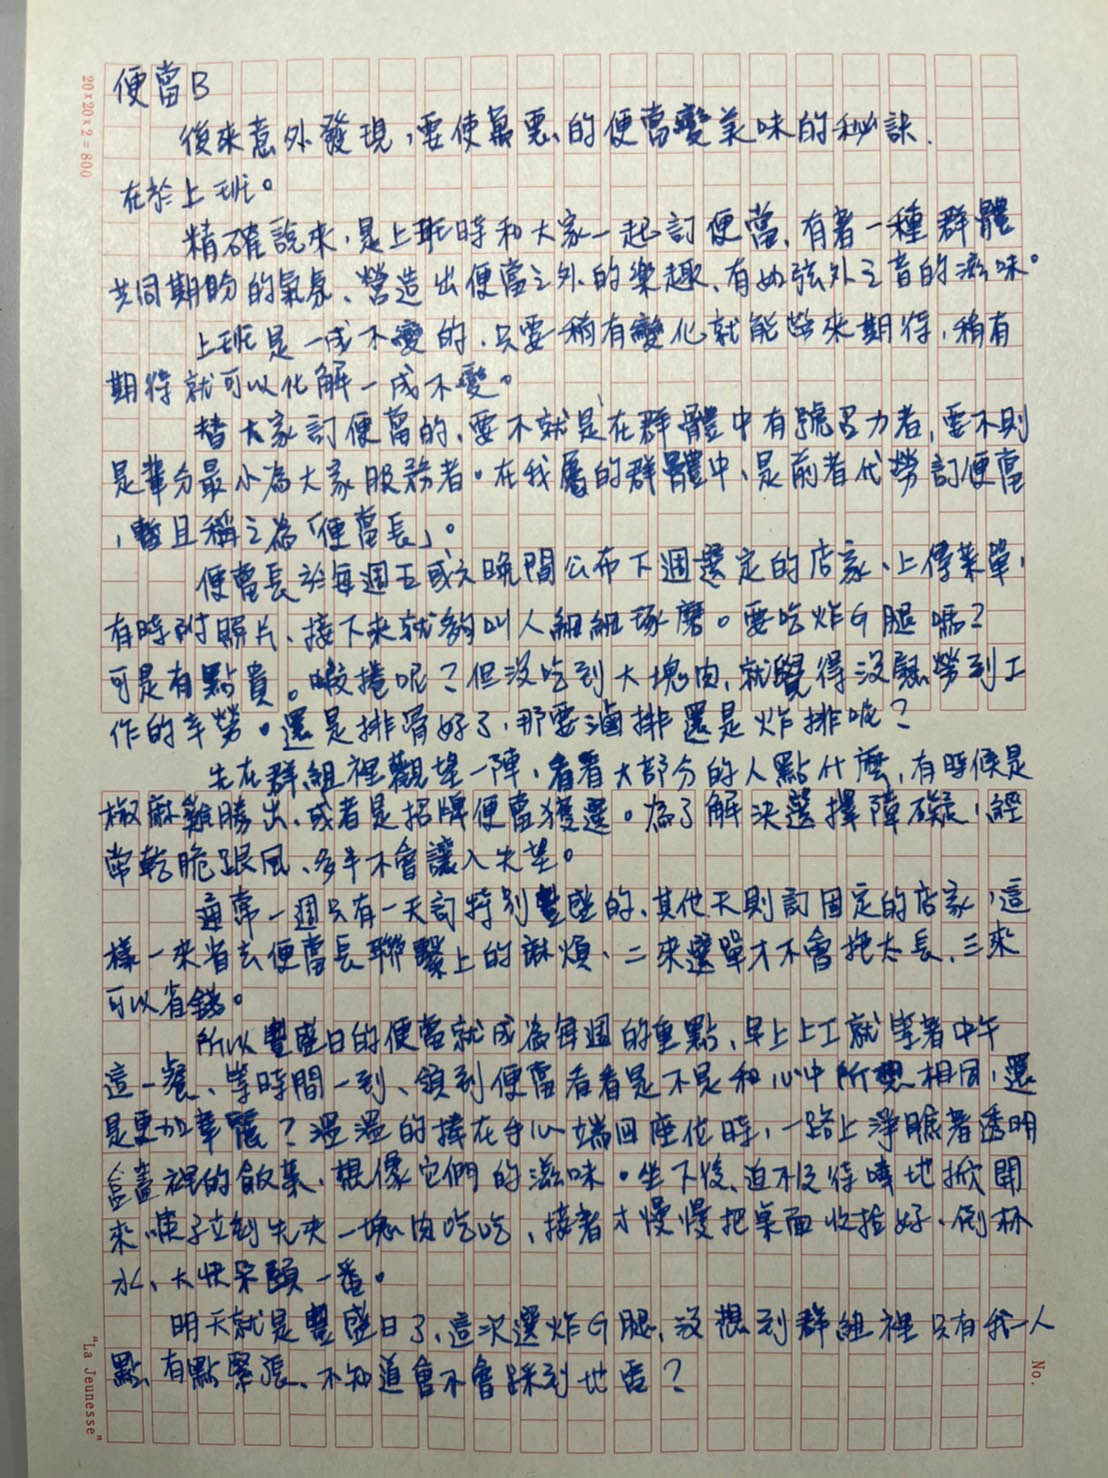 便當B
後來意外發現，要使萬惡的便當變美味的秘訣，
在於上班。
精確說來，是上班時和大家一起訂便當，有著一種群體
共同期盼的氣氛、營造出便當之外的樂趣、有如弦外之音的滋味。
上班是一成不變的，只要一稍有變化就能帶來期待，稍有
期待就可以化解一成不變。
替大家訂便當的，要不就是在群體中有號召力者，要不則
是輩分最小為大家服務者。在我屬的群體中，是前者代勞訂便當
，暫且稱之為「便當長」。
便當長於每週五或六晚間公布下週選定的店家、上傳菜單，
有時附照片、接下來就夠叫人細細琢磨。要吃炸G腿嗎？
可是有點貴。蝦捲呢？但沒吃到大塊肉，就覺得沒慰勞到工
作的辛勞。還是排骨好了，那要滷排還是炸排呢？
先在群組裡觀望一陣，看看大部分的人點什麼，有時候是
椒麻雞勝出、或者是招牌便當獲選。為了解決選擇障礙，經
常乾脆跟風、多半不會讓人失望。
通常一週只有一天訂特別豐盛的、其他天則訂固定的店家，這
樣一來省去便當長聯繫上的麻煩、二來選單才不會拖太長、三來
可以省錢。
所以豐盛日的便當就成為每週的重點、早上上工就等著中午
這一餐、等時間一到、領到便當看看是不是和心中所想相同，還
是更加華麗？溫溫的捧在手心端回座位時，一路上淨瞧著透明
盒蓋裡的飯菜，想像它們的滋味。坐下後、迫不及待地掀開
來，筷子立刻先夾一塊肉吃吃、接著才慢慢把桌面收拾好、倒杯
水、大快朵頤一番。
明天就是豐盛日了，這次選炸G腿，沒想到群組裡只有我一人
點、有點緊張、不知道會不會踩到地雷？
20×20×2=800
"La Jeunesse"
No.